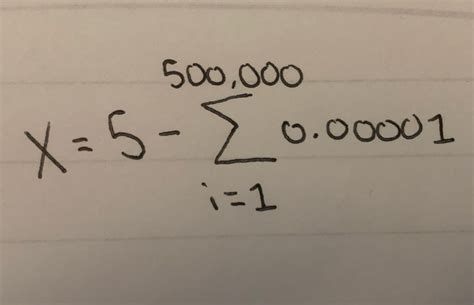 500,000
X = 5 - ∑ 0.00001
i = 1